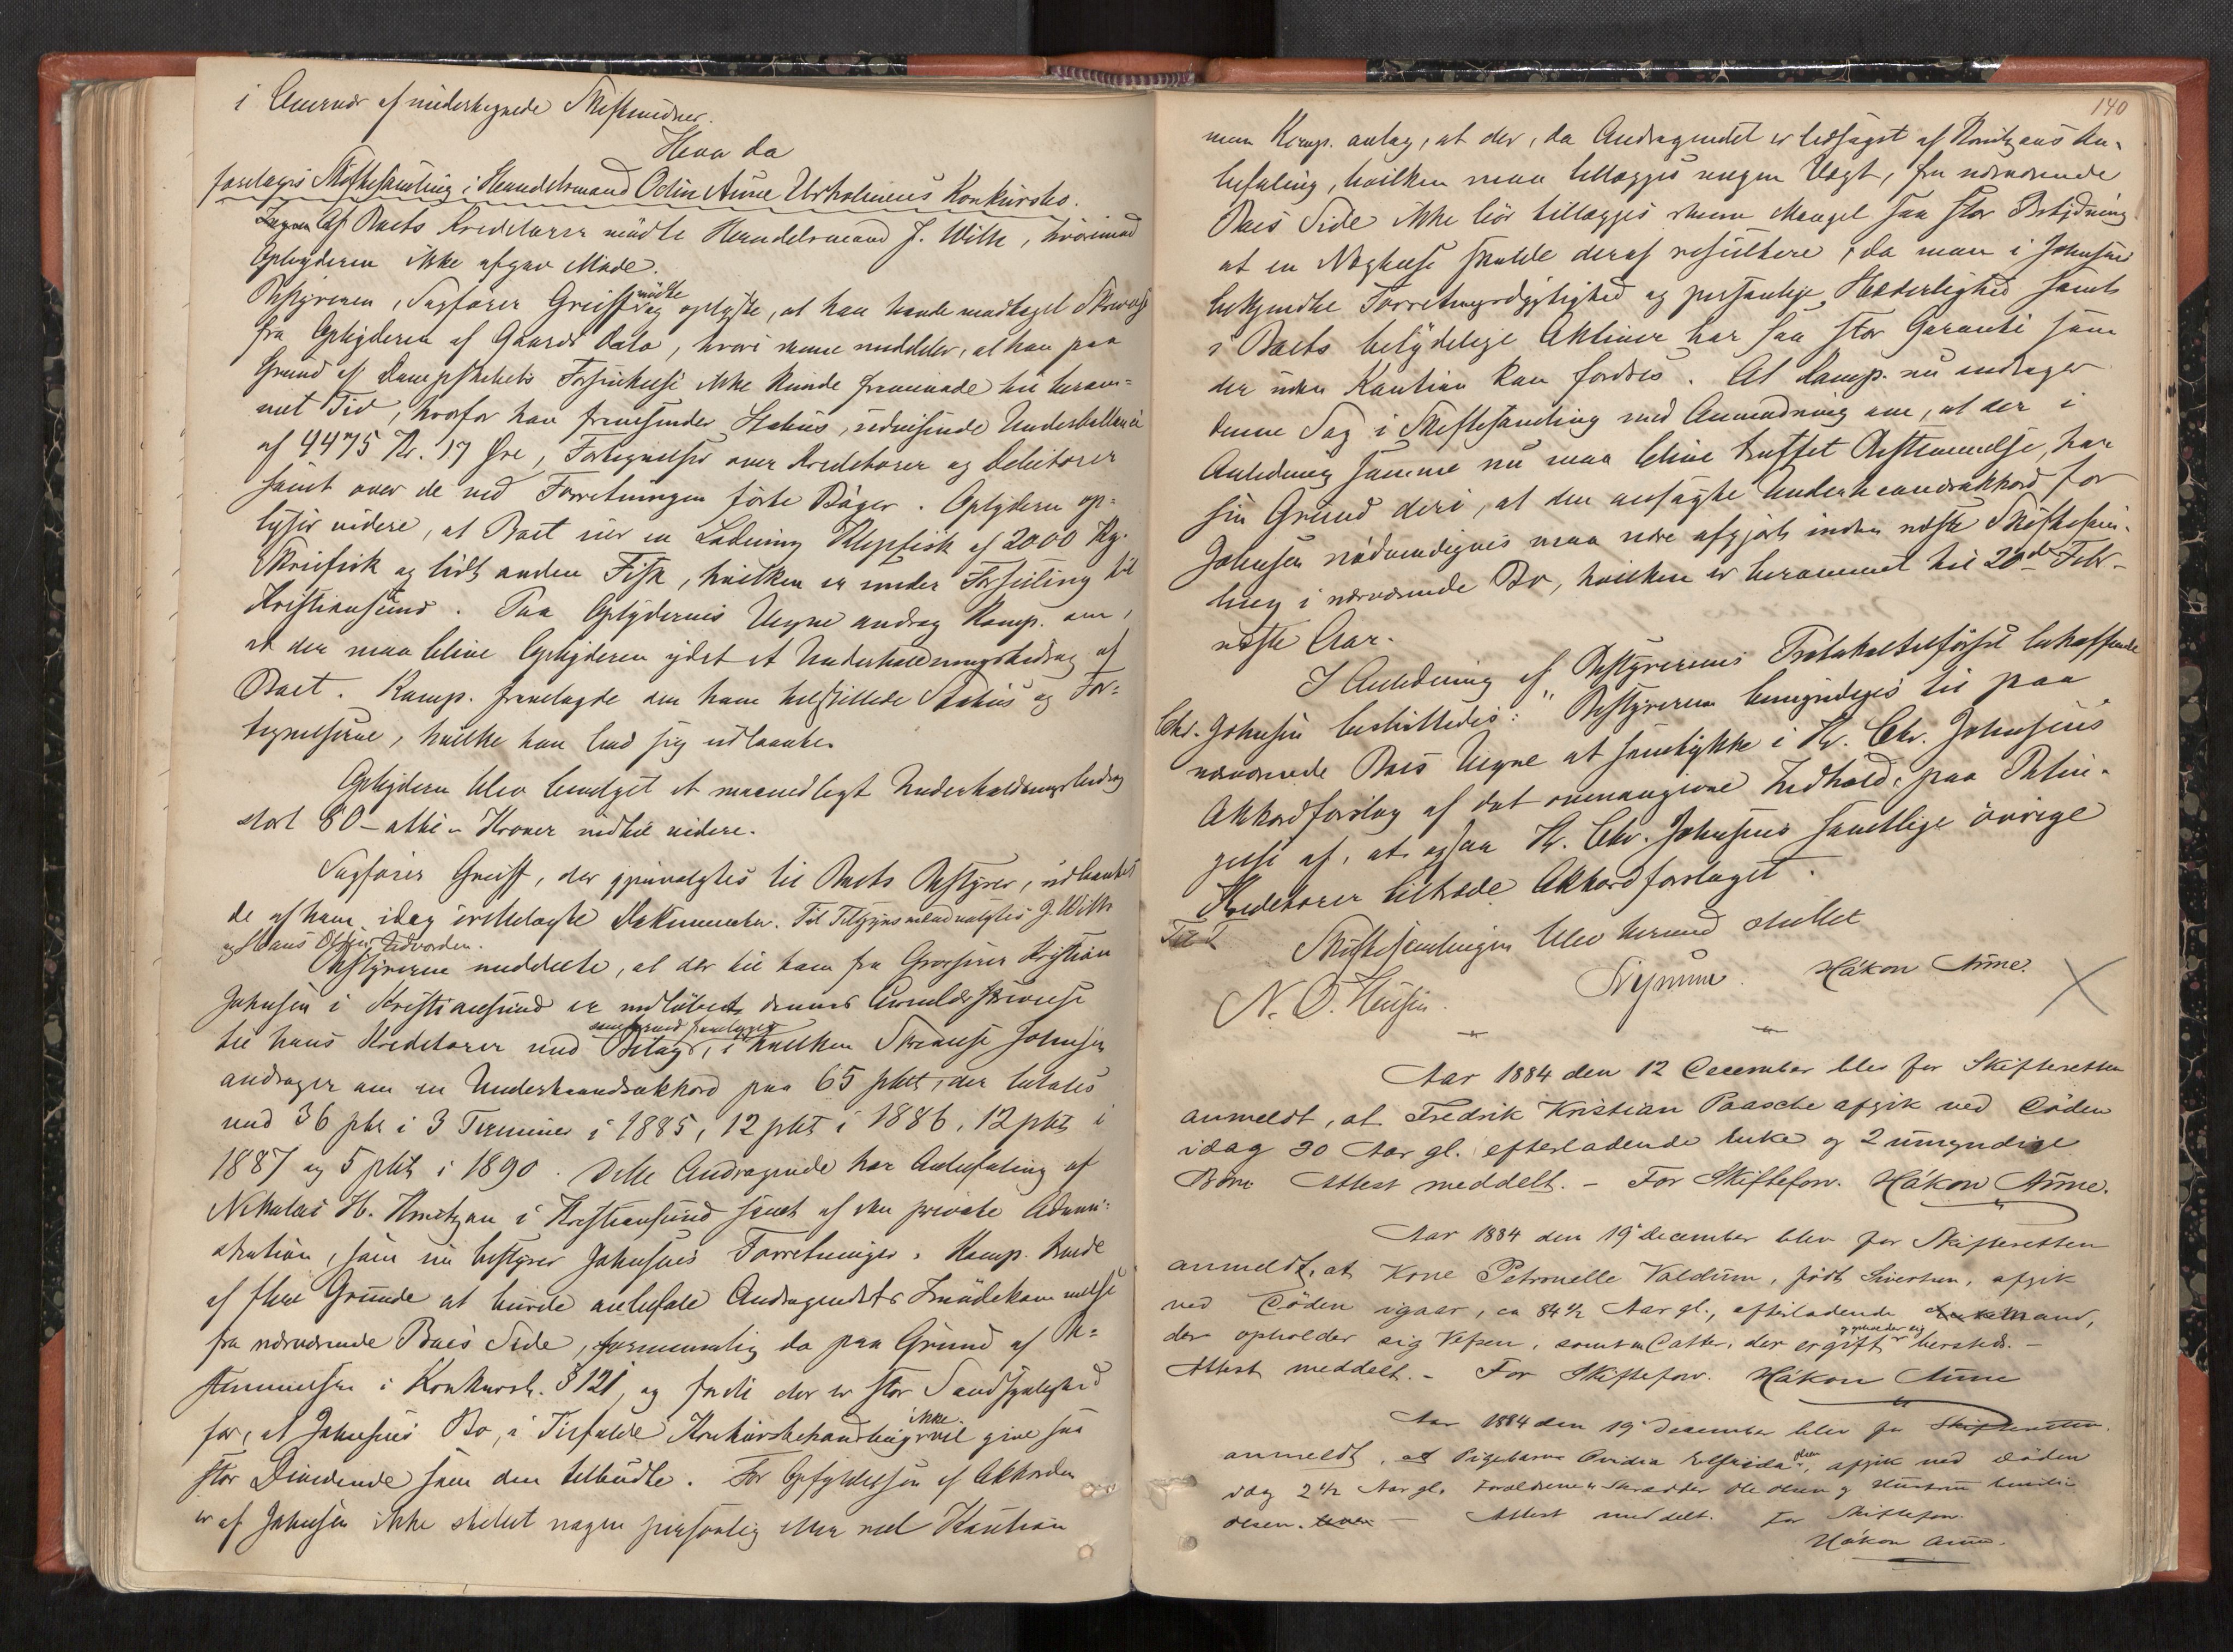 i Overvær af undertegnede Skiftevidner.
Hvor da
foretoges Skiftesamling i Handelsmand Odin Aune Urholmens Konkursbo.
Af Boets Kreditorer mødte Handelsmand J. With, hvorimod
Opbyderen ikke afgav Møde.
Bestyreren, Sagfører Greiff mødte og oplyste, at han havde modtaget Skrivelse
fra Opbyderen af Gaards Dato, hvori denne meddeler, at han paa
Grund af Dampskibets Forsinkelse ikke kunde fremmøde til beram-
met Tid, hvorfor han fremsender Status, udvisende Underballance
af 4475 Kr. 17 Øre, Fortegnelse over Kreditorer og Debitorer
samt over de ved Forretningen førte Bøger. Opbyderen op-
lyser videre, at Boet eier en Ladning Klipfisk af 2000 Kg.
og lidt anden Fisk, hvilken er under Forseiling til
Kristiansund. Paa Opbyderens Vegne androg Komp. om,
at der maa blive Opbyderen ydet et Underholdningsbidrag af
Boet. Komp. fremlagde den ham tilstillede Status og For-
tegnelserne, hvilke han lod sig udlaante.
Opbyderen blev bevilget et maanedligt Underholdningsbidrag
stort 80 - otti - Kroner indtil videre.
Sagfører Greiff, der gjenvalgtes til Boets Bestyrer, udlaantes
de af ham idag irettelagte Dokumenter. Til Tilsynsmænd valgtes J. With
og Hans Olsen
Bestyreren meddelte, at der til ham fra Grosserer Kristian
Johnsen i Kristiansund er indløbet dennes Skrivelse
til hans Kreditorer med Bilag, som herved fremlægges, i hvilken Skrivelse Johnsen
andrager om en Underhaandsakkord paa 65 pct, der betales
med 36 pct i 3 Terminer i 1885, 12 pct i 1886, 12 pct i
1887 og 5 pct i 1890. Dette Andragende har Anbefaling af
Nikolai H. Knudtzon i Kristiansund samt af den private Admini-
stration, som nu bestyrer Johnsens Forretninger. Komp. troede
af flere Grunde at burde anbefale Andragendets Imødekommelse
fra nærværende Boes Side, fornemmelig da paa Grund af Be-
stemmelsen i Konkursl. § 121, og fordi der er stor Sandsynlighed
for, at Johnsens Bo, i Tilfælde Konkursbehandling, ikke vil give saa
stor Dividende som den tilbudte. For Opfyldelsen af Akkorden
er af Johnsen ikke stillet nogen personlig eller reel Kaution
140
men Komp. antog, at der, da Andragendet er ledsaget af Knudtzons An-
befaling, hvilken maa tillægges megen Vægt, fra nærværende
Boes Side ikke bør tillægges denne Mangel saa stor Betydning
at en Nægtelse skulde deraf resultere, da man i Johnsens
bekjendte Forretningsdygtighed og personlige Hæderlighed samt
i Boets betydelige Aktiver har saa stor Garanti som
der uden Kaution kan fordres. At Komp. nu andrager
denne Sag i Skiftesamling med Anmodning om, at der i
Anledning samme nu maa blive truffet Bestemmelse, har
sin Grund deri, at den ansøgte Underhaandsakkord for
Johnsen nødvendigvis maa være afgjort inden næste Skiftesam-
ling i nærværende Bo, hvilken er berammet til 20de Febr.
næste Aar.
I Anledning af Bestyrerens Protokoltilførsel betræffende
Chr. Johnsen besluttedes: "Bestyreren bemyndiges til paa
nærværende Boes Vegne at samtykke i Hr. Chr. Johnsens
Akkordforslag af det ovenangivne Indhold paa Betin-
gelse af, at ogsaa Hr. Chr. Johnsens samtlige øvrige
Kreditorer tiltræde Akkordforslaget.
Skiftesamlingen blev herved sluttet
N. O. Hansen. Håkon Aune.
Aar 1884 den 12 December blev for Skifteretten
anmeldt, at Fredrik Kristian Paasche afgik ved Døden
idag 30 Aar gl. efterladende Enke og 2 umyndige
Børn Attest meddelt. – For Skifteforv. Håkon Aune.
Aar 1884 den 19 December blev for Skifteretten
anmeldt, at Kone Petronelle Valdum, født Sivertsen, afgik
ved Døden igaar, ca 84 1/2 Aar gl., efterladende Mand,
der opholder sig Vefsen, samt en Datter, der er gift og opholder sig hersteds. –
Attest meddelt. – For Skifteforv. Håkon Aune
Aar 1884 den 19 December blev for Skifteretten
anmeldt, at Pigebarn Ovidia Elfrida Olsen, afgik ved Døden
idag 2 1/2 Aar gl. Forældrene er Skrædder Ole Olsen og Hustru
Olsen. – Attest meddelt. For Skifteforv.
Håkon Aune.